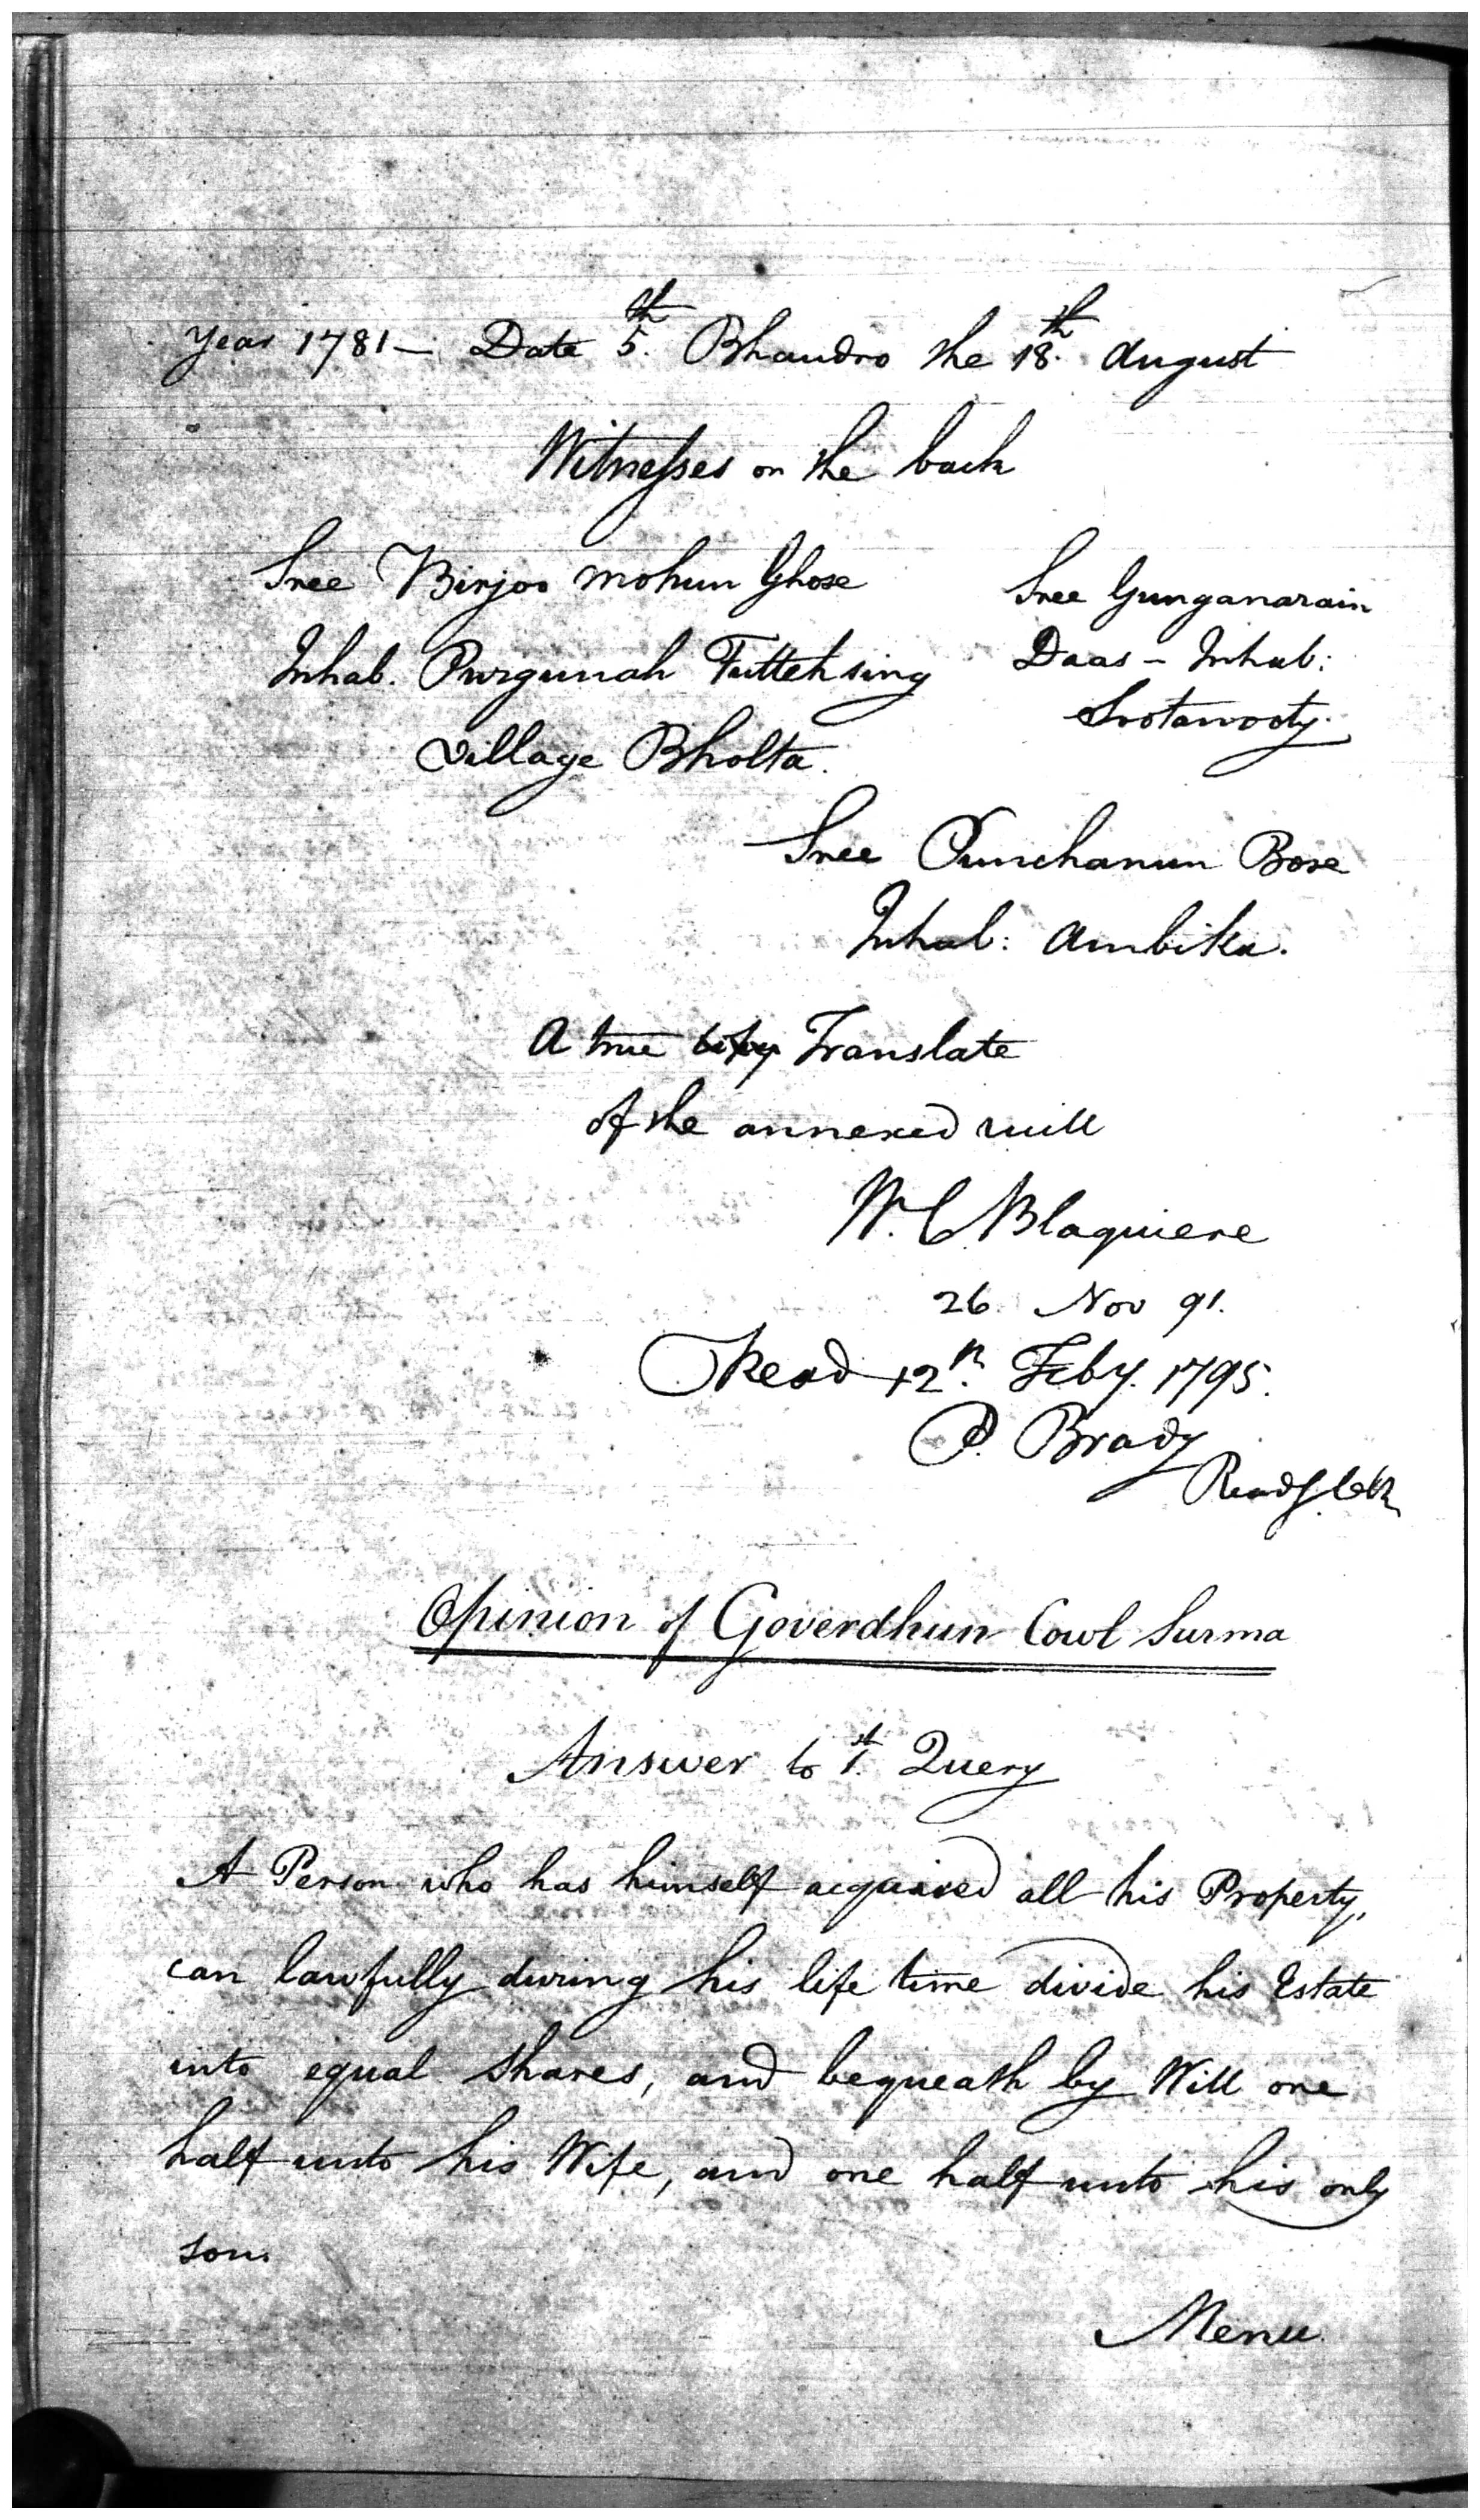 Year 1781 — Date 5th. Bhaudro the 18th. August
Witnesses on the back
Sree Birjoo mohun Ghose
Inhab. Purgunah Futtehsing
Village Bholta.
Sree Gunganarain
Daas – Inhab:
Sootanooty.
Sree Punchanun Bose
Inhab: Ambika.
A true Copy Translate
of the annexed will
W. C. Blaquiere
26. Nov 91.
Read 12th. Feby. 1795.
P. Brady
Readg. Clk
Opinion of Goverdhun Cowl Surma
Answer to 1st. Query
A Person who has himself acquired all his Property,
can lawfully during his life time divide his Estate
into equal shares, and bequeath by Will one
half unto his Wife, and one half unto his only
son.
Menu